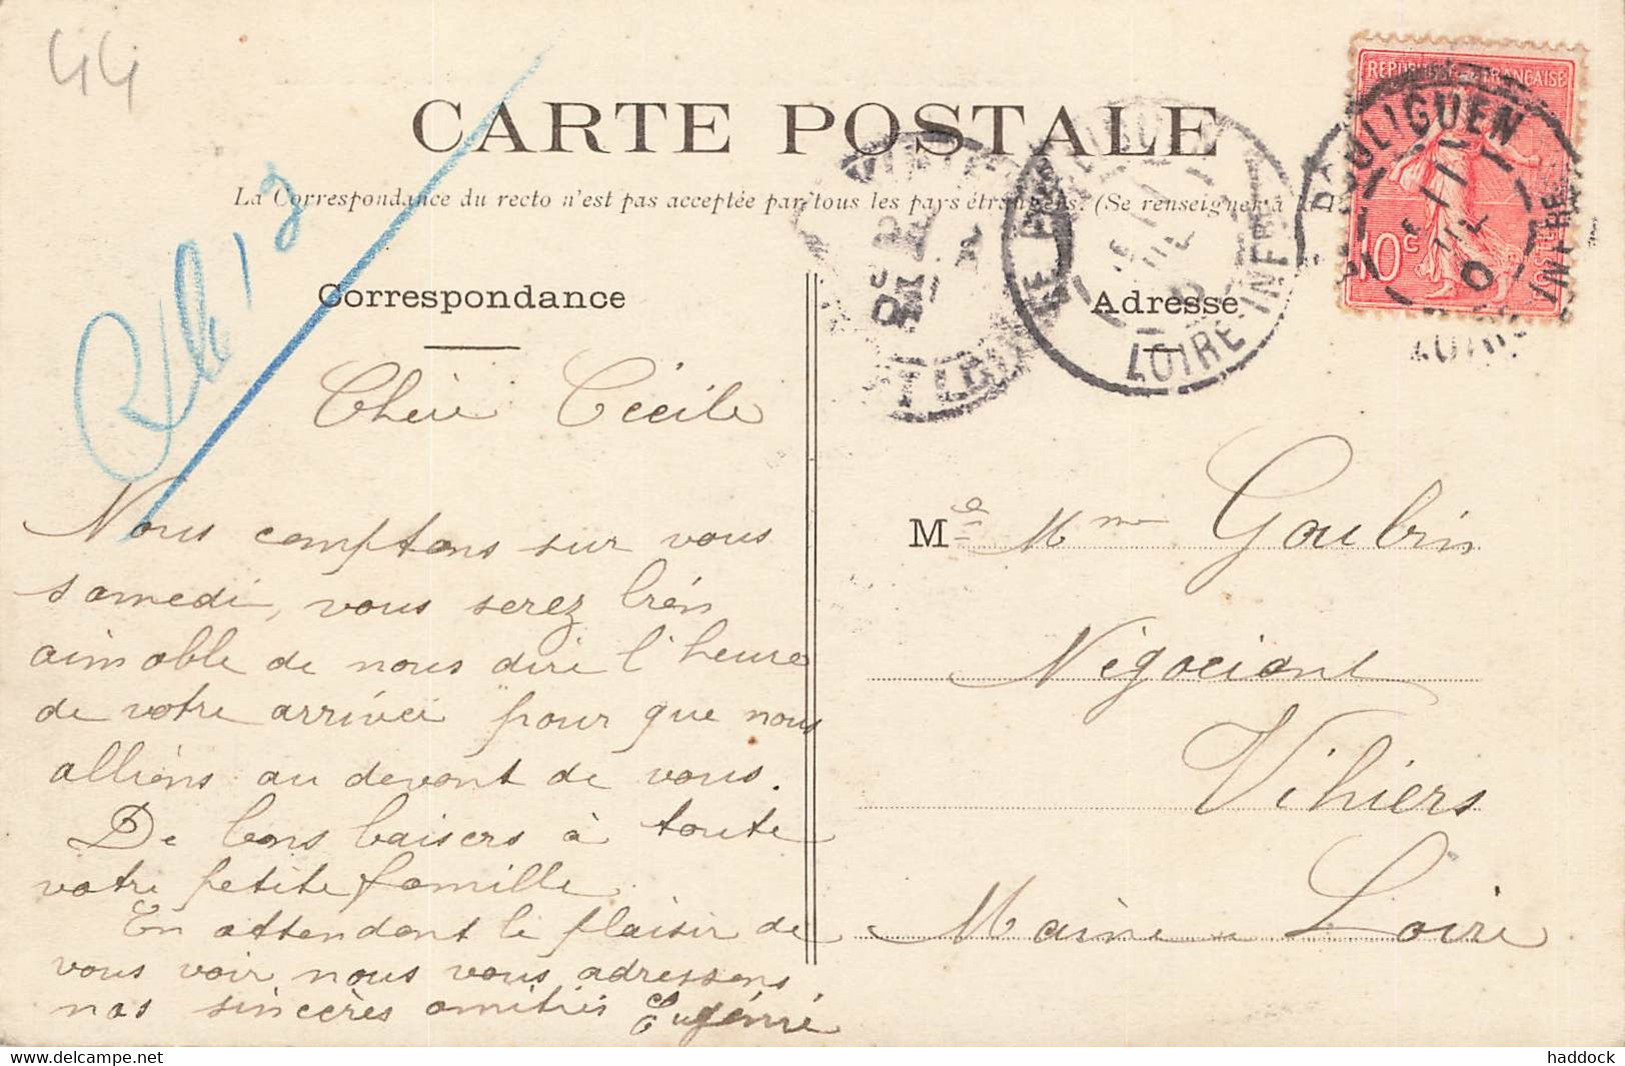 44
CARTE POSTALE
La Correspondance du recto n'est pas acceptée par tous les pays étrangers. (Se renseigner à la
Correspondance
Adresse
REPUBLIQUE FRANÇAISE
10c
POSTES
POULIGUEN
LOIRE INFRE
LE POULIGUEN
LOIRE INFRE
Chère Cécile
Nous comptons sur vous
samedi, vous serez bién
aimable de nous dire l'heure
de votre arrivée pour que nous
alliéns au devant de vous.
De bons baisers à toute
votre petite famille
En attendant le plaisir de
vous voir nous vous adressons
nos sincères amitiés Eugénie
Me Mme Goubrin
Négociant
Vihiers
Maine Loire
www.delcampe.net
haddock